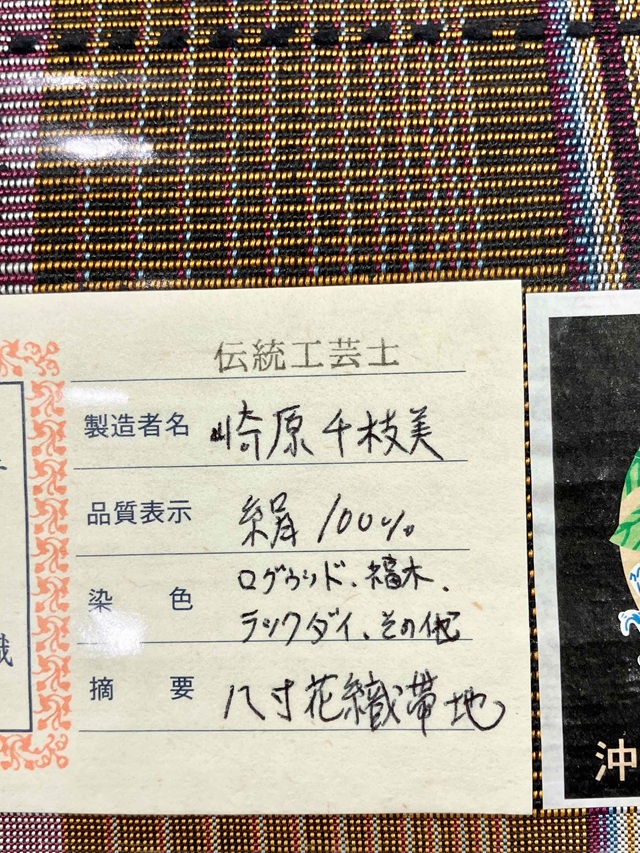 伝統工芸士
製造者名 崎原千枝美
品質表示 絹100%
染色 ログウッド、福木、
ラックダイ、その他
摘要 八寸花織帯地
織
沖